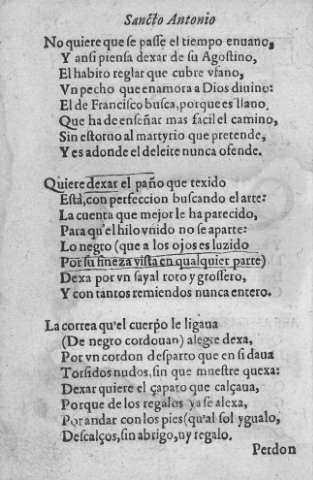 Sancto Antonio
No quiere que se passe el tiempo enuano,
Y ansi piensa dexar de su Agostino,
El habito reglar que cubre vfano,
Vn pecho que enamora a Dios diuino:
El de Francisco busca, porque es llano,
Que ha de enseñar mas facil el camino,
Sin estoruo al martyrio que pretende,
Y es adonde el deleite nunca ofende.
Quiere dexar el paño que texido
Està, con perfeccion buscando el arte:
La cuenta que mejor le ha parecido,
Para qu'el hilo vnido no se aparte:
Lo negro (que a los ojos es luzido
Por su fineza vista en qualquier parte)
Dexa por vn sayal roto y grossero,
Y con tantos remiendos nunca entero.
La correa qu'el cuerpo le ligaua
(De negro cordouan) alegre dexa,
Por vn cordon desparto que en si daua
Torsidos nudos, sin que muestre quexa:
Dexar quiere el çapato que calçaua,
Porque de los regalos ya se alexa,
Por andar con los pies (qu'al sol ygualo,
Descalços, sin abrigo, ny regalo.
Perdon